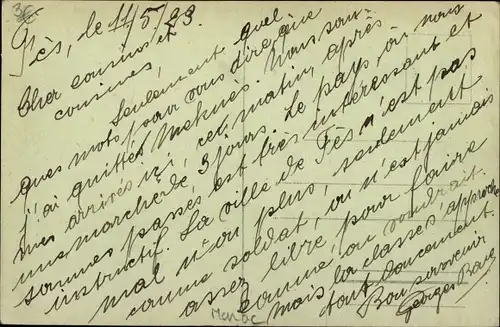 Fès, le 11/5/23.
Cher cousins et
cousines,
Seulement quel
ques mots pour vous dire que
j'ai quitté Meknes. Nous som-
mes arrivés ici, cet matin, après
une marche de 3 jours. Le pays, ou nous
sommes passés est très intéressant et
instructif. La ville de Fès n'est pas
mal n'on plus, seulement
comme soldat, on n'est jamais
assez libre, pour faire
comme on voudrait.
Mais la classes, approche
tout doucement.
Bon souvenir
Georges
Maroc